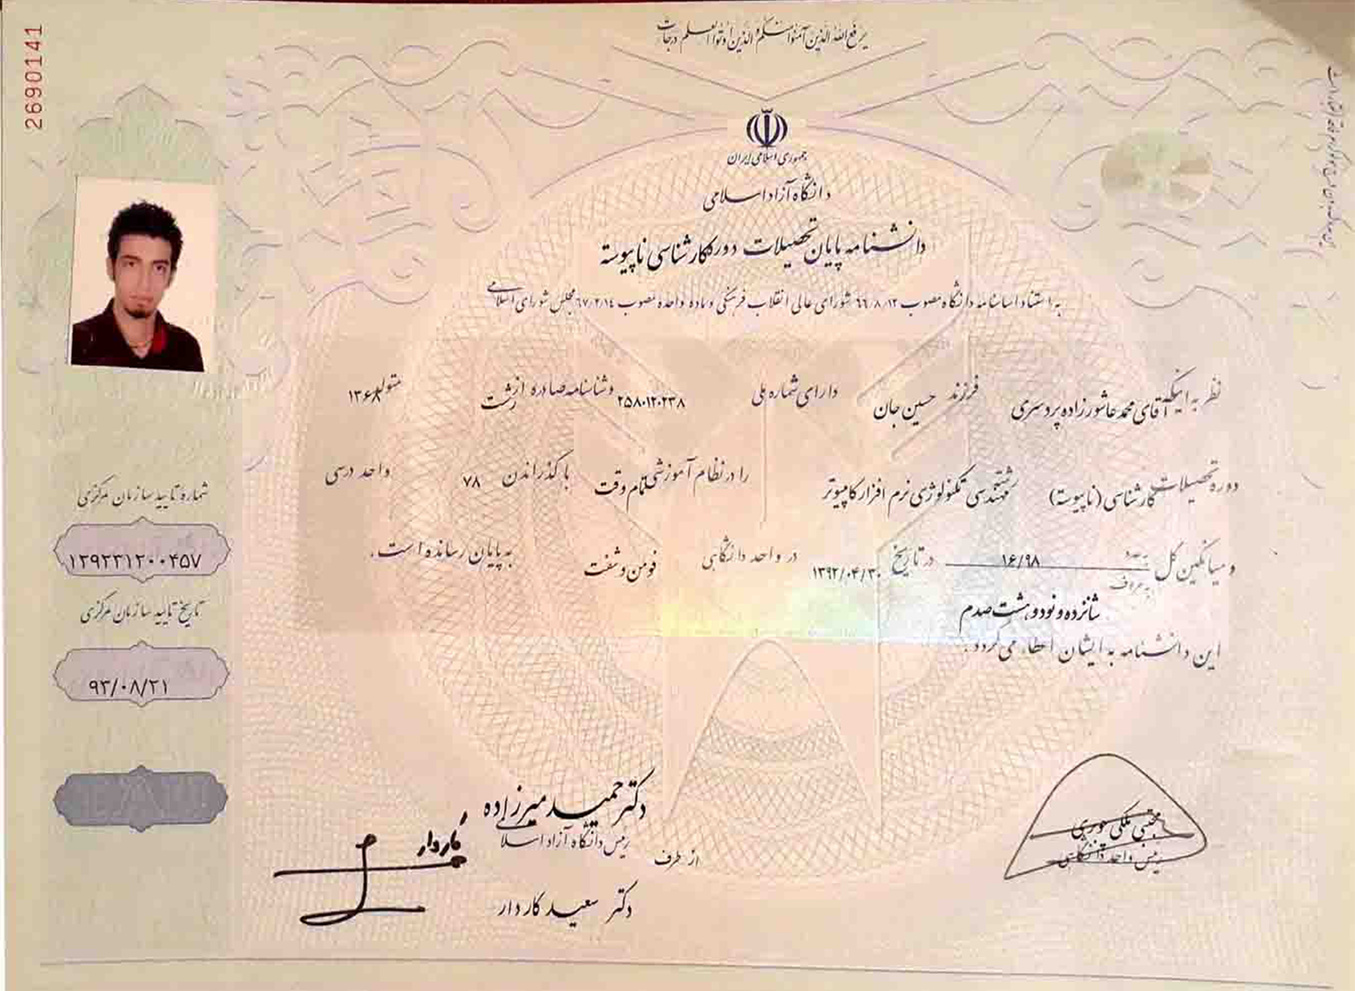 2690141
یرفع الله الذین آمنوا منکم و الذین اوتوا العلم درجات
جمهوری اسلامی ایران
دانشگاه آزاد اسلامی
دانشنامه پایان تحصیلات دوره کارشناسی ناپیوسته
به استناد اساسنامه دانشگاه مصوب ۶۶/۸/۱۲ شورای عالی انقلاب فرهنگی و ماده واحده مصوب ۶۷/۲/۱۴ مجلس شورای اسلامی
نظر به اینکه آقای محمد عاشورزاده پردسری فرزند حسین جان دارای شماره ملی ۲۵۸۰۱۲۰۲۳۸ و شناسنامه صادره از رشت متولد ۱۳۶۸
دوره تحصیلات کارشناسی (ناپیوسته) رشته مهندسی تکنولوژی نرم افزار کامپیوتر را در نظام آموزشی تمام وقت با گذراندن ۷۸ واحد درسی
و میانگین کل به عدد ۱۶/۹۸ در تاریخ ۱۳۹۲/۰۴/۳۰ در واحد دانشگاهی فومن و شفت به پایان رسانده است.
به حروف
شانزده و نود و هشت صدم
این دانشنامه به ایشان اعطاء می گردد.
شماره تایید سازمان مرکزی
۱۳۹۲۳۱۲۰۰۴۵۷
تاریخ تایید سازمان مرکزی
۹۲/۰۸/۲۱
دکتر حمید میرزاده
رئیس دانشگاه آزاد اسلامی
از طرف
کاردار
دکتر سعید کاردار
مجتبی ملکی جیرسرائی
رئیس واحد دانشگاهی